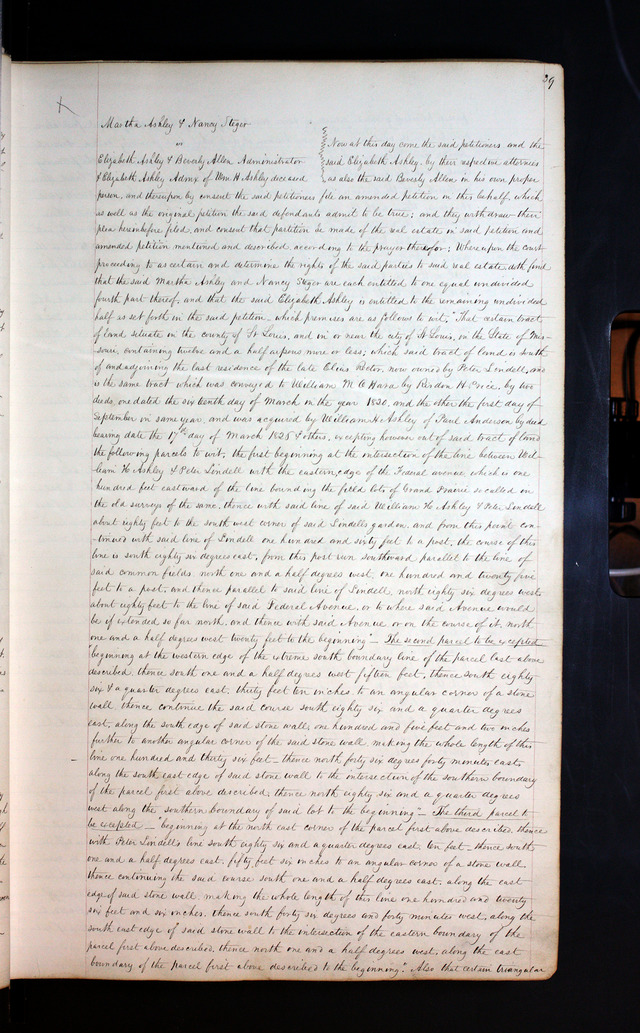 39
Martha Ashley & Nancy Steger
vs
Elizabeth Ashley & Beverly Allen Administrator
& Elizabeth Ashley Admx of Wm H Ashley deceased
Now at this day come the said petitioners and the
said Elizabeth Ashley by their respective attornies
as also the said Beverly Allen in his own proper
person, and thereupon by consent the said petitioners file an amended petition in this behalf, which
as well as the original petition the said defendants admit to be true; and they withdraw their
pleas heretofore filed, and consent that partition be made of the real estate in said petition and
amended petition mentioned and described, according to the prayer therefor; Whereupon the court
proceeding to ascertain and determine the rights of the said parties to said real estate doth find
that the said Martha Ashley and Nancy Steger are each entitled to one equal undivided
fourth part thereof, and that the said Elizabeth Ashley is entitled to the remaining undivided
half as set forth in the said petition which premises are as follows to wit, "That certain tract
of land situate in the county of St Louis, and in or near the city of St Louis, in the State of Mis-
souri, containing twelve and a half arpens more or less; which said tract of land is south
of and adjoining the last residence of the late Elias Rector, now owned by Peter Lindell, and
is the same tract which was conveyed to William M O'Hara by Risdon H Price, by two
deeds, one dated the sixteenth day of March in the year 1820, and the other the first day of
September in same year, and was acquired by William H Ashley of Paul Anderson by deed
bearing date the 17th day of March 1826 & others, excepting however out of said tract of land
the following parcels to wit; the first beginning at the intersection of the line between Wil-
liam H Ashley & Peter Lindell with the eastern edge of the Federal avenue which is one
hundred feet eastward of the line bounding the field lots of Grand Prairie so called in
the old surveys of the same, thence with said line of said William H Ashley & Peter Lindell
about eighty feet to the south west corner of said Lindells garden, and from this point con-
-tinued with said line of Lindell one hundred and sixty feet to a post, the course of this
line is south eighty six degrees east, from this post run southward parallel to the line of
said common fields north one and a half degrees west, one hundred and twenty five
feet to a post, and thence parallel to said line of Lindell, north eighty six degrees west
about eighty feet to the line of said Federal Avenue, or to where said Avenue would
be if extended so far north, and thence with said Avenue or on the course of it, north
one and a half degrees west twenty feet to the beginning" The second parcel to be excepted
"beginning at the western edge of the extreme south boundary line of the parcel last above
described, thence south one and a half degrees west fifteen feet, thence south eighty
six & a quarter degrees east, thirty feet ten inches to an angular corner of a stone
wall thence continue the said course south eighty six and a quarter degrees
east, along the south edge of said stone wall, one hundred and five feet and two inches
further to another angular corner of the said stone wall making the whole length of this
line one hundred and thirty six feet thence north forty six degrees forty minutes east,
along the south east edge of said stone wall to the intersection of the southern boundary
of the parcel first above described, thence north eighty six and a quarter degrees
west along the southern boundary of said lot to the beginning" The third parcel to
be excepted "beginning at the north east corner of the parcel first above described, thence
with Peter Lindells line south eighty six and a quarter degrees east, ten feet thence south
one and a half degrees east, fifty feet six inches to an angular corner of a stone wall
thence continuing the said course south one and a half degrees east, along the east
edge of said stone wall, making the whole length of this line one hundred and twenty
six feet and six inches, thence south forty six degrees and forty minutes west, along the
south east edge of said stone wall to the intersection of the eastern boundary of the
parcel first above described, thence north one and a half degrees west, along the east
boundary of the parcel first above described to the beginning". Also that certain triangular